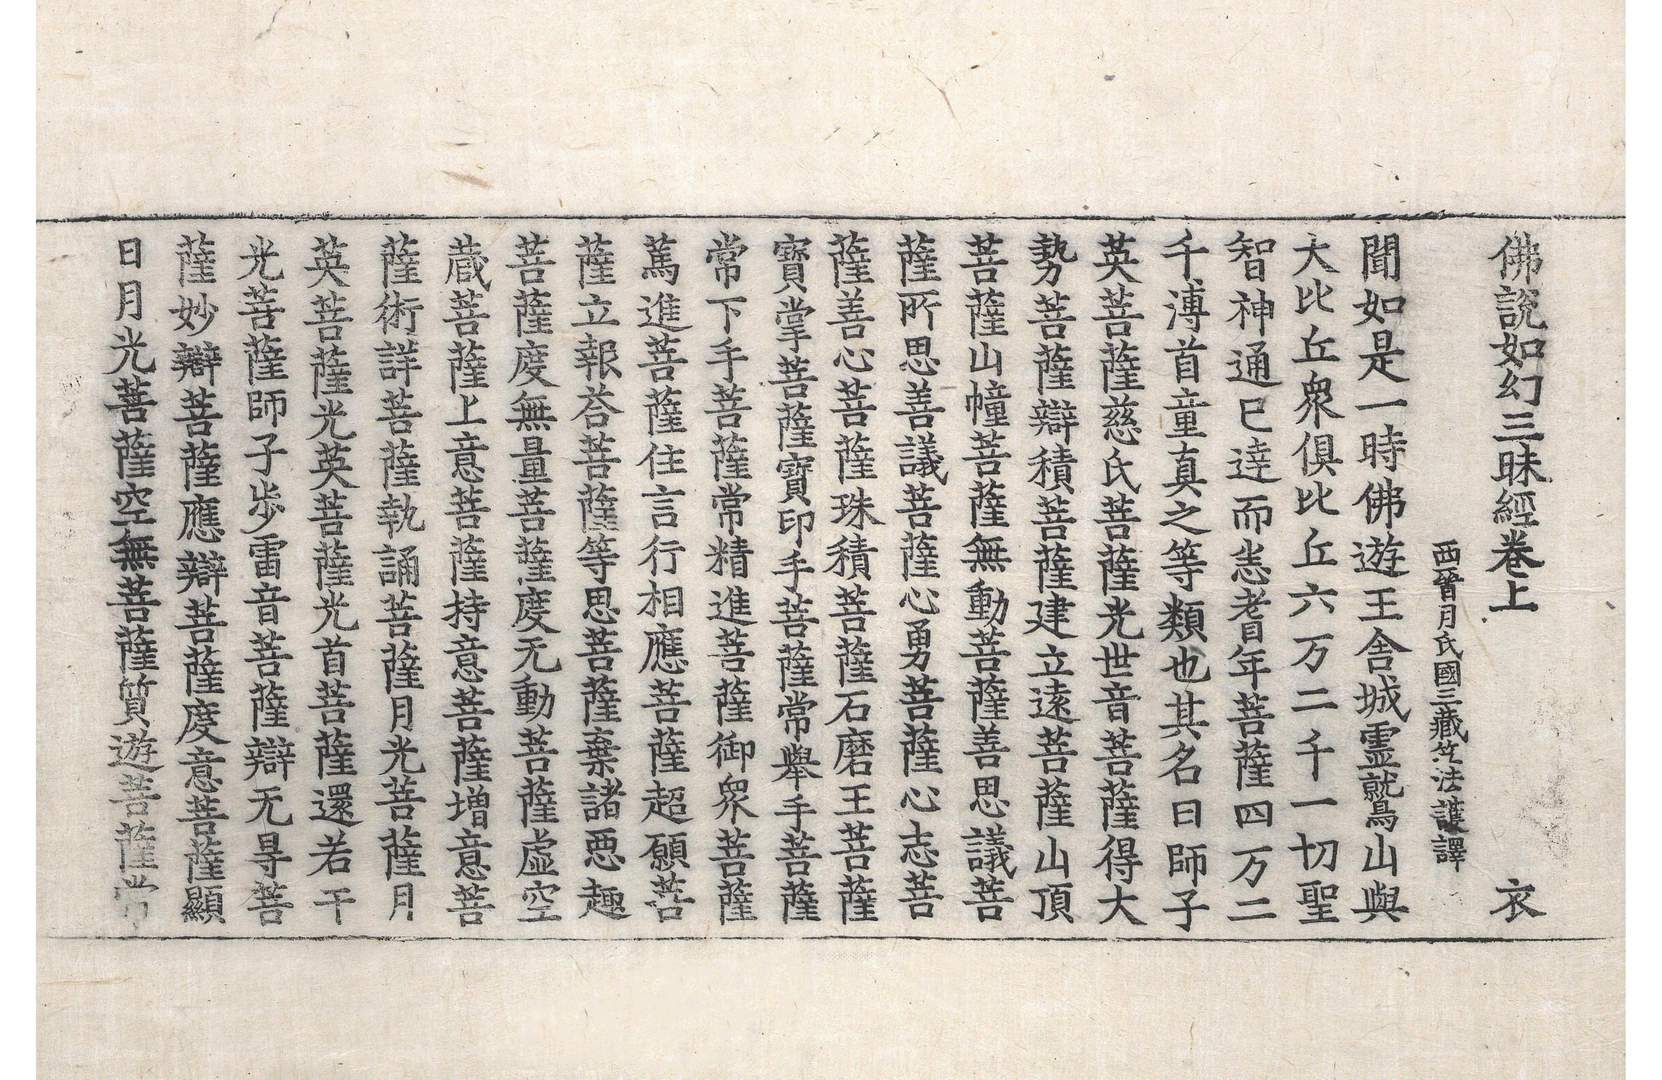 佛說如幻三昧經卷上 衣
西晉月氏國三藏竺法護譯
聞如是一時佛遊王舍城靈鷲山與
大比丘衆俱比丘六万二千一切聖
智神通已達而悉耆年菩薩四万二
千溥首童真之等類也其名曰師子
英菩薩慈氏菩薩光世音菩薩得大
勢菩薩辯積菩薩建立遠菩薩山頂
菩薩山幢菩薩無動菩薩善思議菩
薩所思善議菩薩心勇菩薩心志菩
薩善心菩薩珠積菩薩石磨王菩薩
寶掌菩薩寶印手菩薩常舉手菩薩
常下手菩薩常精進菩薩御衆菩薩
蔫進菩薩住言行相應菩薩超願菩
薩立報荅菩薩等思菩薩棄諸悪趣
菩薩度無量菩薩度无動菩薩虛空
蔵菩薩上意菩薩持意菩薩增意菩
薩術詳菩薩執誦菩薩月光菩薩月
英菩薩光英菩薩光首菩薩還若干
光菩薩師子步雷音菩薩辯无㝵菩
薩妙辯菩薩應辯菩薩度意菩薩顯
日月光菩薩空無菩薩質遊菩薩常